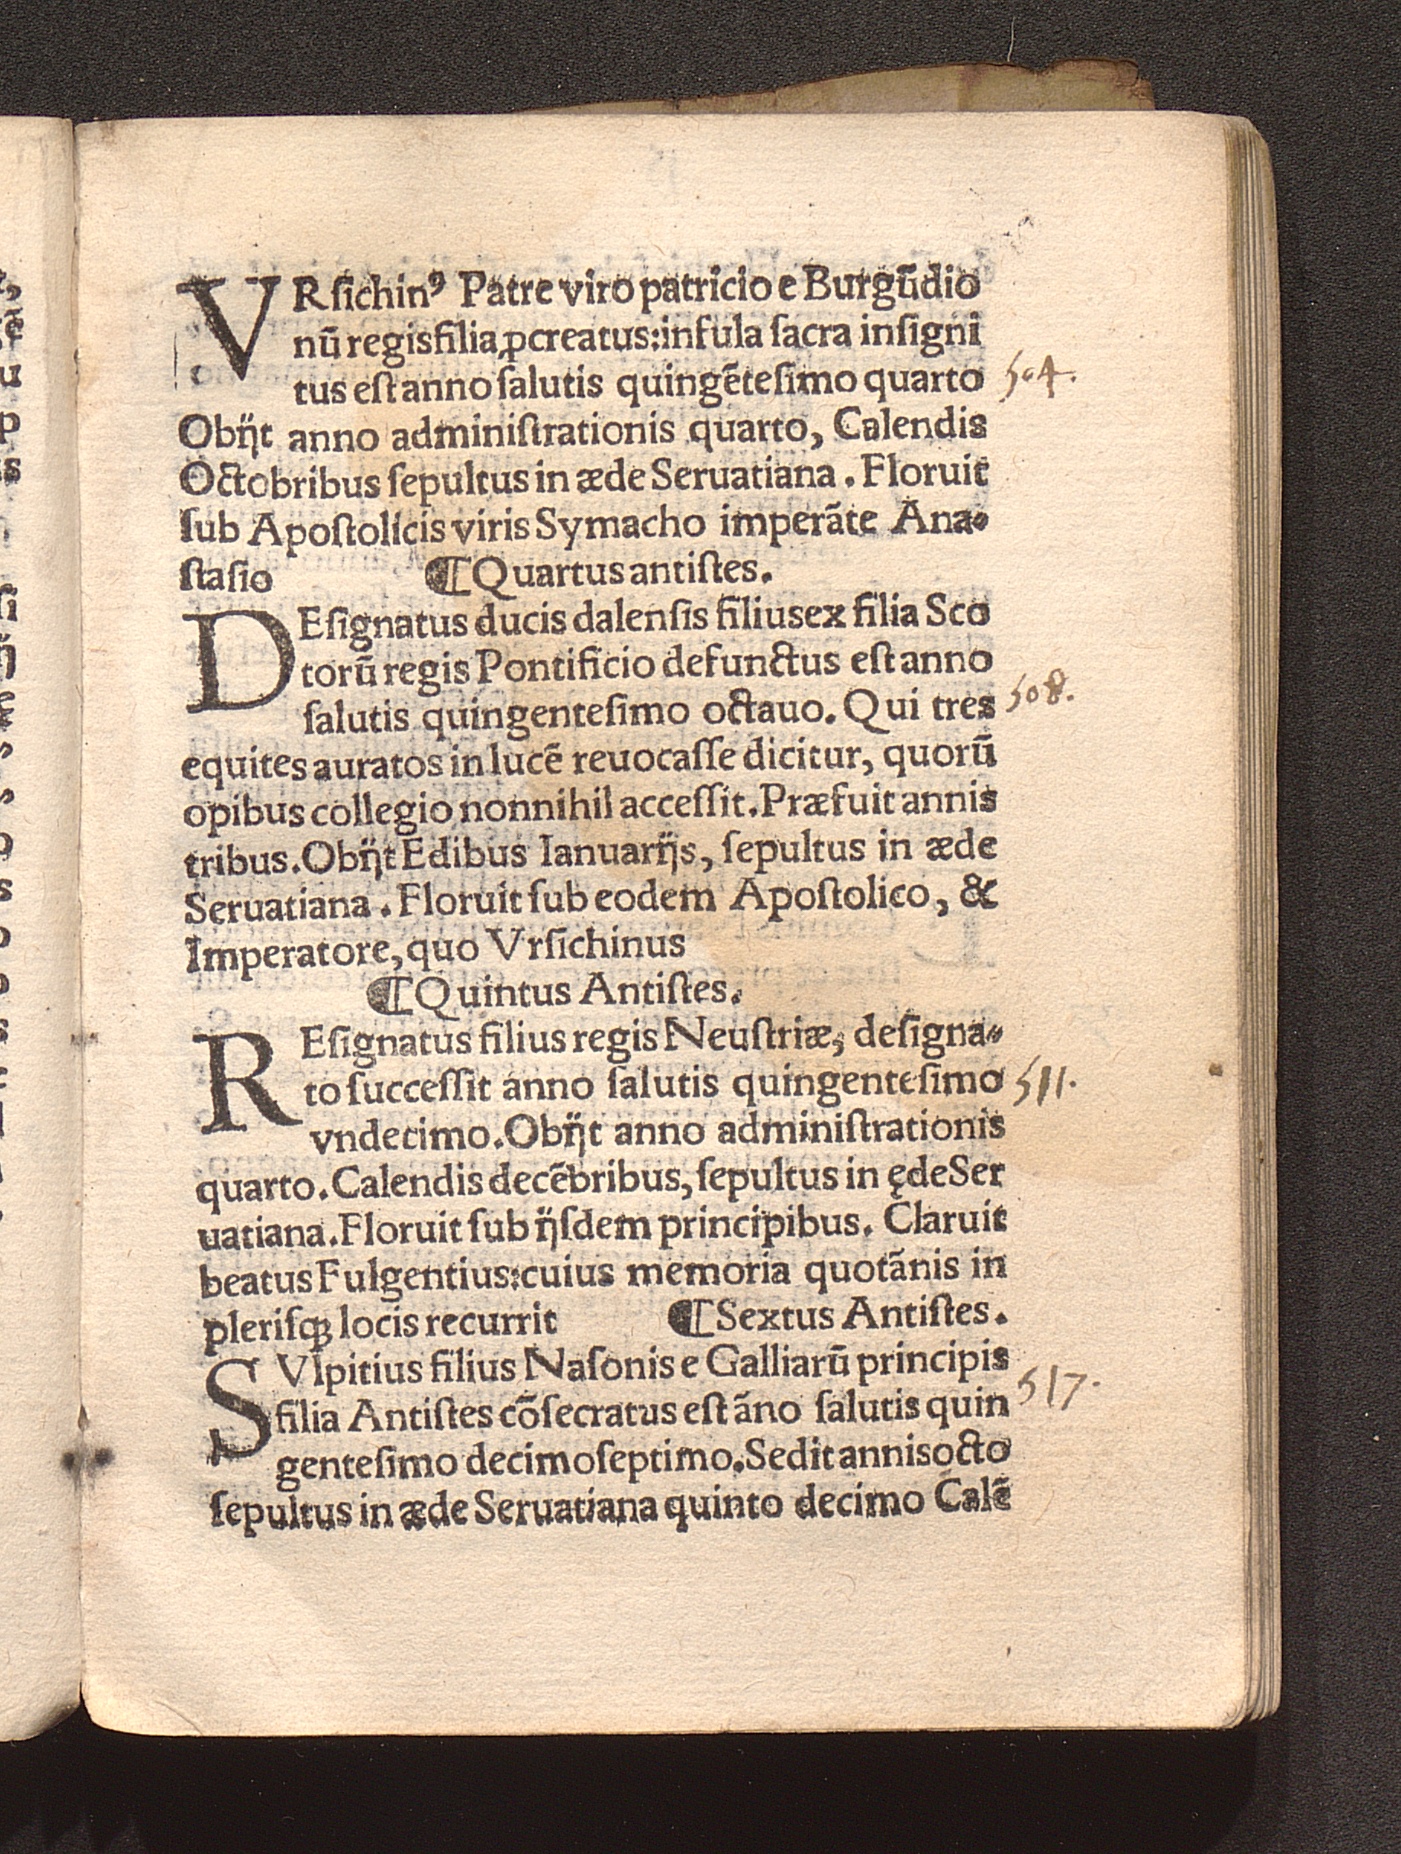 VRſichinꝰ Patre viro patricio e Burgūdio
nū regisfilia ꝓcreatus: infula ſacra inſigni
tus eſt anno ſalutis quingēteſimo quarto 504.
Obijt anno adminiſtrationis quarto, Calendis
Octobribus ſepultus in æde Seruatiana. Floruit
ſub Apoſtolicis viris Symacho imperãte Ana-
ſtaſio ¶Quartus antiſtes.
DEſignatus ducis dalenſis filiusex filia Sco
torū regis Pontificio defunctus eſt anno
ſalutis quingenteſimo octauo. Qui tres 508.
equites auratos in lucē reuocaſſe dicitur, quorū
opibus collegio nonnihil acceſſit. Præfuit annis
tribus. Obijt Edibus Ianuarijs, ſepultus in æde
Seruatiana. Floruit ſub eodem Apoſtolico, &
Imperatore, quo Vrſichinus
¶Quintus Antiſtes.
REſignatus filius regis Neuſtriæ, deſigna-
to ſucceſſit anno ſalutis quingenteſimo 511.
vndecimo. Obijt anno adminiſtrationis
quarto. Calendis decēbribus, ſepultus in ęde Ser
uatiana. Floruit ſub ijſdem principibus. Claruit
beatus Fulgentius: cuius memoria quotãnis in
pleriſqꝫ locis recurrit ¶Sextus Antiſtes.
SVlpitius filius Naſonis e Galliarū principis
filia Antiſtes cõſecratus eſt ãno ſalutis quin 517.
genteſimo decimoſeptimo. Sedit annisocto
ſepultus in æde Seruatiana quinto decimo Calē